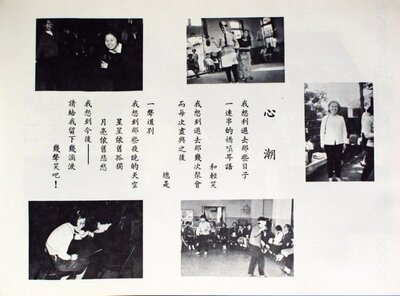 心潮
我想到過去那些日子
一連串的嬌嗔耳語
和輕笑
我想到過去那幾次聚會
而每次盡興之後
總是
一聲道別
我想到那些夜晚的天空
星星依舊孤獨
月亮依舊悲愁
我想到今後——
請給我留下幾滴淚
幾聲笑吧！